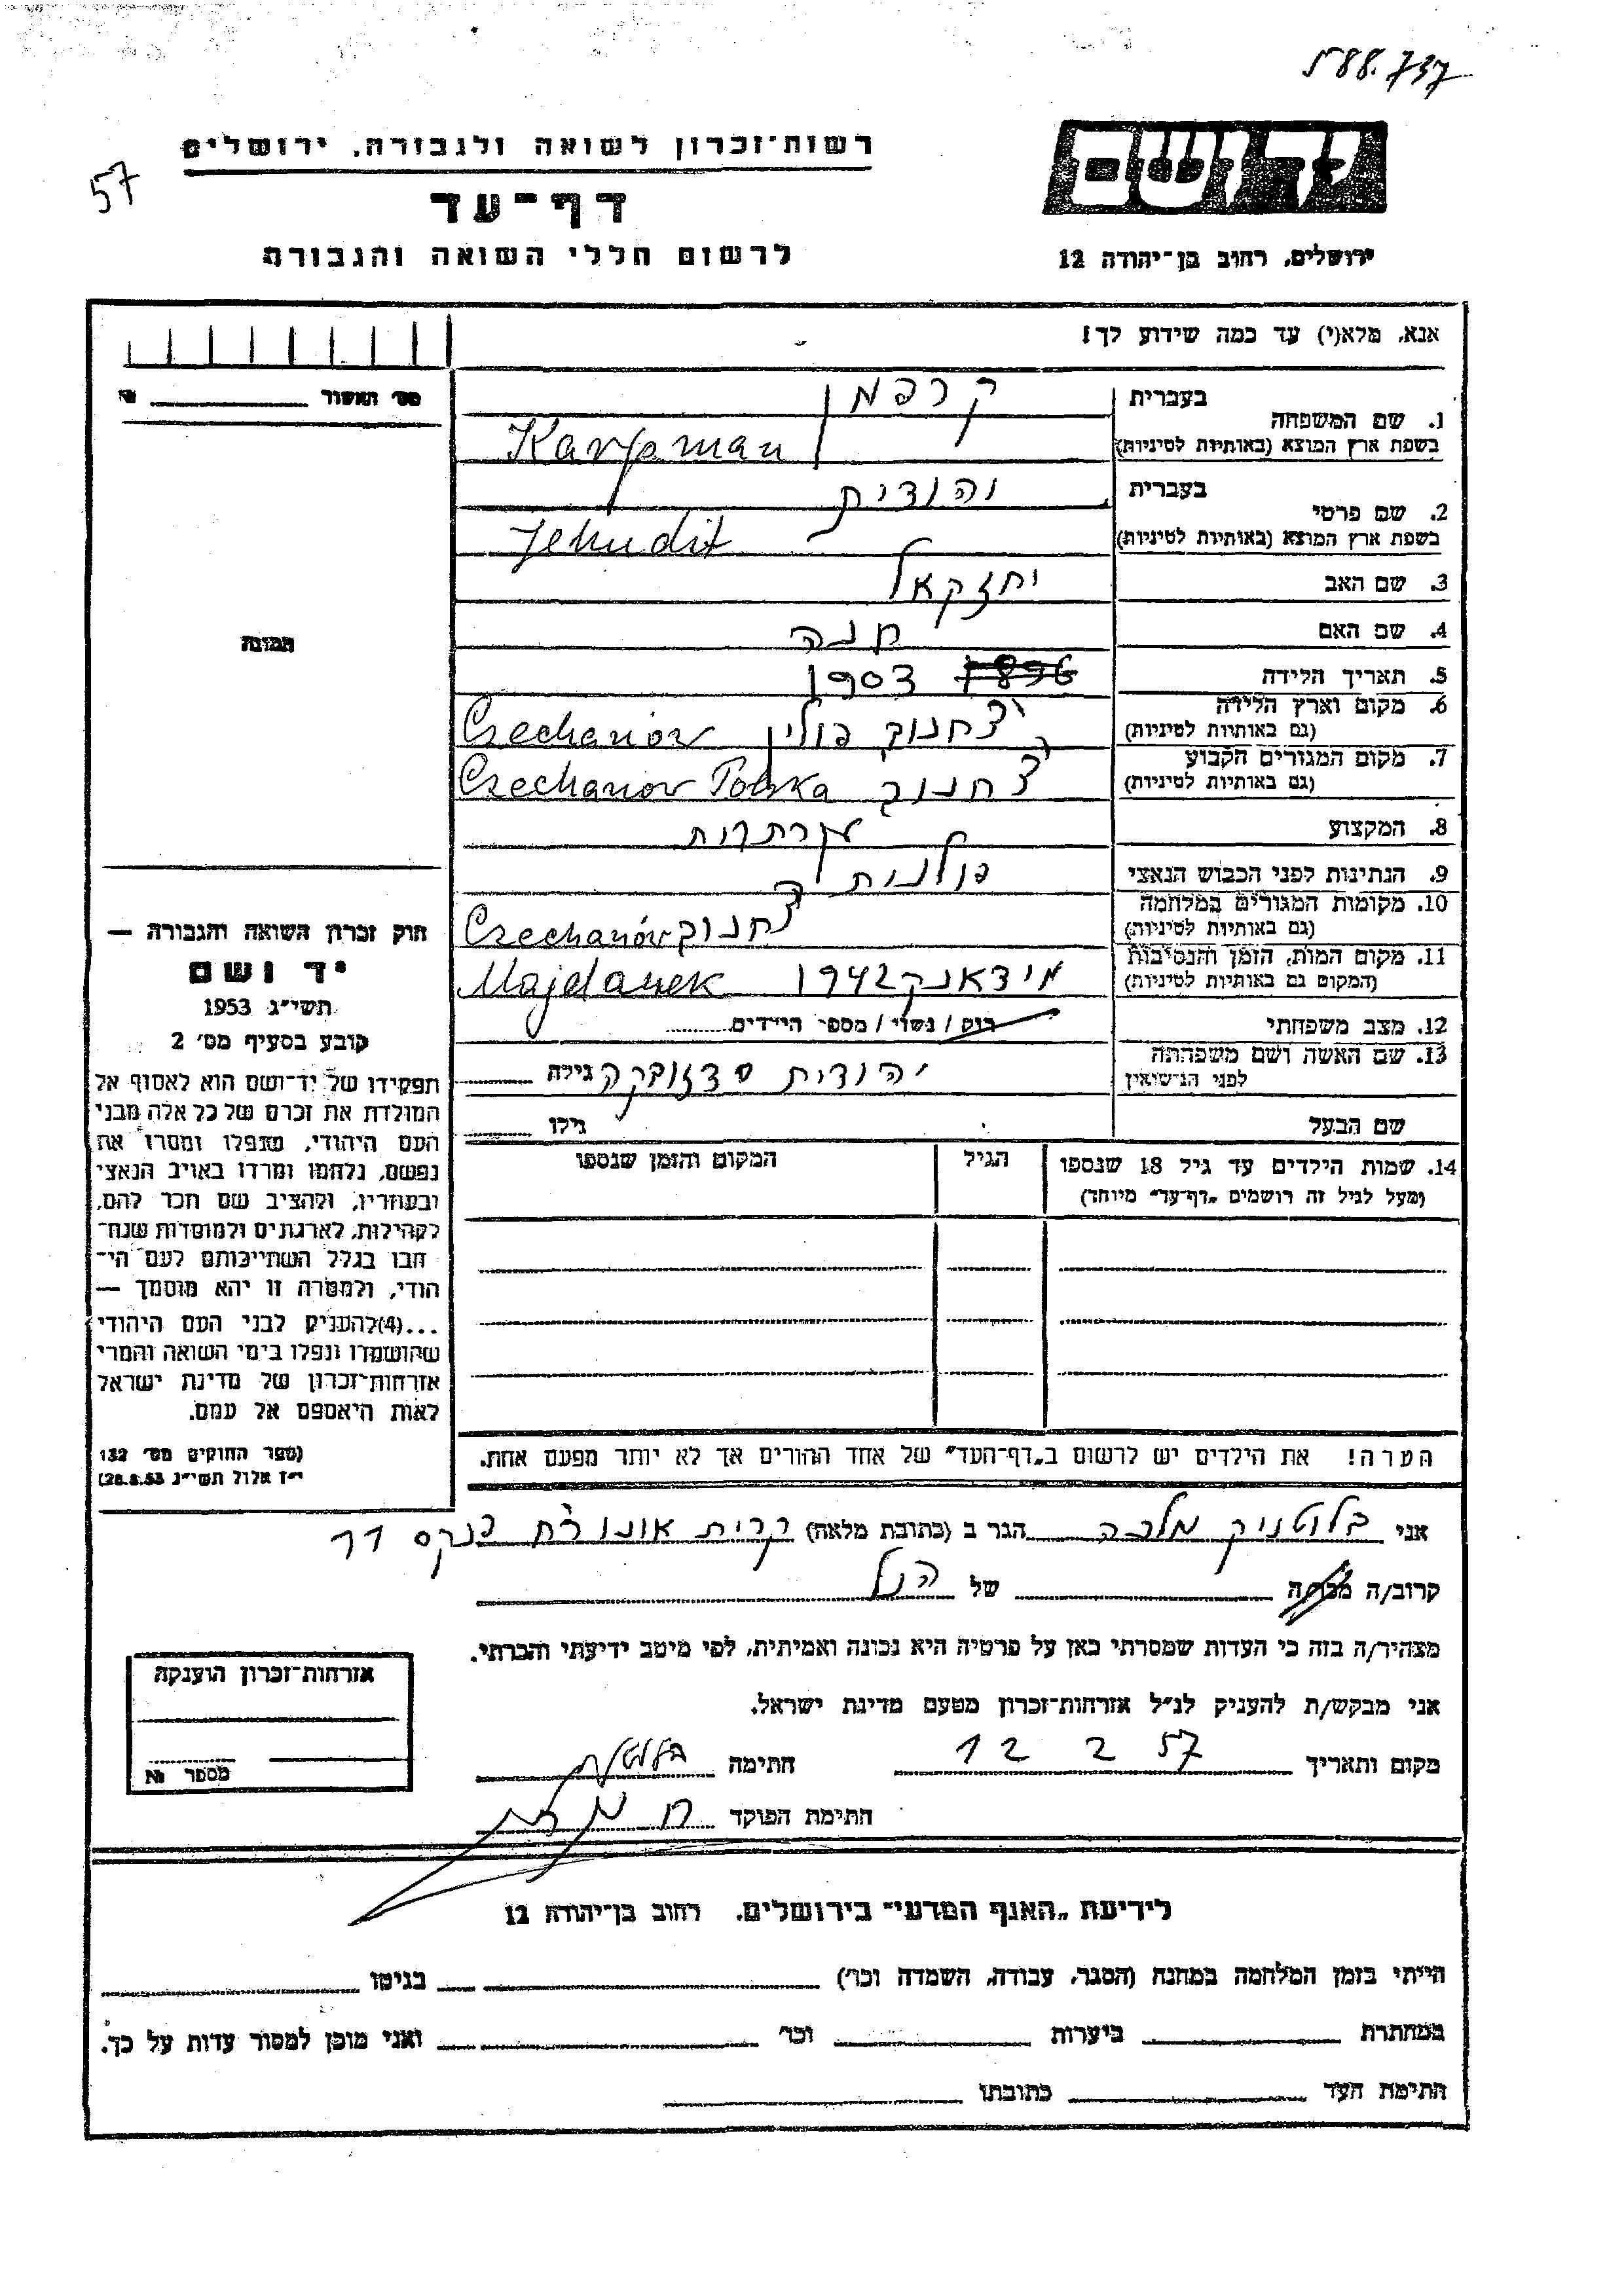 588.737
רשות-זכרון לשואה ולגבורה, ירושלים
57
דף-עד
לרשום חללי השואה והגבורה
ידושם
ירושלים, רחוב בן-יהודה 12
אנא, מלא(י) עד כמה שידוע לך!
מס' האשור № 
1. שם המשפחה בעברית קרפמן
בשפת ארץ המוצא (באותיות לטיניות) Karpman
2. שם פרטי בעברית יהודית
בשפת ארץ המוצא (באותיות לטיניות) Jehudit
3. שם האב יחזקאל
4. שם האם חנה
5. תאריך הלידה 1896 1903
6. מקום וארץ הלידה (גם באותיות לטיניות) צ'חנוב פולין Czechanów
7. מקום המגורים הקבוע (גם באותיות לטיניות) צ'חנוב Czechanów Polska
8. המקצוע
9. הנתינות לפני הכבוש הנאצי פולנית
10. מקומות המגורים במלחמה (גם באותיות לטיניות) צ'חנוב Czechanów
11. מקום המות, הזמן והנסיבות (המקום גם באותיות לטיניות) מידאנק 1942 Majdanek
12. מצב משפחתי רווק / נשוי / מספר הילדים
13. שם האשה ושם משפחתה לפני הנישואין יהודית גילה
שם הבעל גילו
14. שמות הילדים עד גיל 18 שנספו
(מעל לגיל זה רושמים „דף-עד" מיוחד)
הגיל
המקום והזמן שנספו
הערה! את הילדים יש לרשום ב„דף-העד" של אחד ההורים אך לא יותר מפעם אחת.
תמונה
חוק זכרון השואה והגבורה —
יד ושם
תשי"ג 1953
קובע בסעיף מס' 2
תפקידו של יד-ושם הוא לאסוף אל
המולדת את זכרם של כל אלה מבני
העם היהודי, שנפלו ומסרו את
נפשם, נלחמו ומרדו באויב הנאצי
ובעוזריו, ולהציב שם וזכר להם,
לקהילות, לארגונים ולמוסדות שנח-
רבו בגלל השתייכותם לעם הי-
הודי, ולמטרה זו יהא מוסמך —
...(4)להעניק לבני העם היהודי
שהושמדו ונפלו בימי השואה והמרי
אזרחות-זכרון של מדינת ישראל
לאות היאספם אל עמם.
(ספר החוקים מס' 132
י"ז אלול תשי"ג 28.8.53)
אני בלוטניק מלכה הגר ב (כתובת מלאה) קרית אונו רח' פנקס 11
קרוב/ה מכר/ה של הנ"ל
מצהיר/ה בזה כי העדות שמסרתי כאן על פרטיה היא נכונה ואמיתית, לפי מיטב ידיעתי והכרתי.
אני מבקש/ת להעניק לנ"ל אזרחות-זכרון מטעם מדינת ישראל.
מקום ותאריך 12 2 57 חתימה
חתימת הפוקד
אזרחות-זכרון הוענקה
מספר №
לידיעת „האגף המדעי" בירושלים, רחוב בן-יהודה 12
הייתי בזמן המלחמה במחנה (הסגר, עבודה, השמדה וכו') בגיטו
במחתרת ביערות וכו' ואני מוכן למסור עדות על כך.
חתימת העד כתובתו